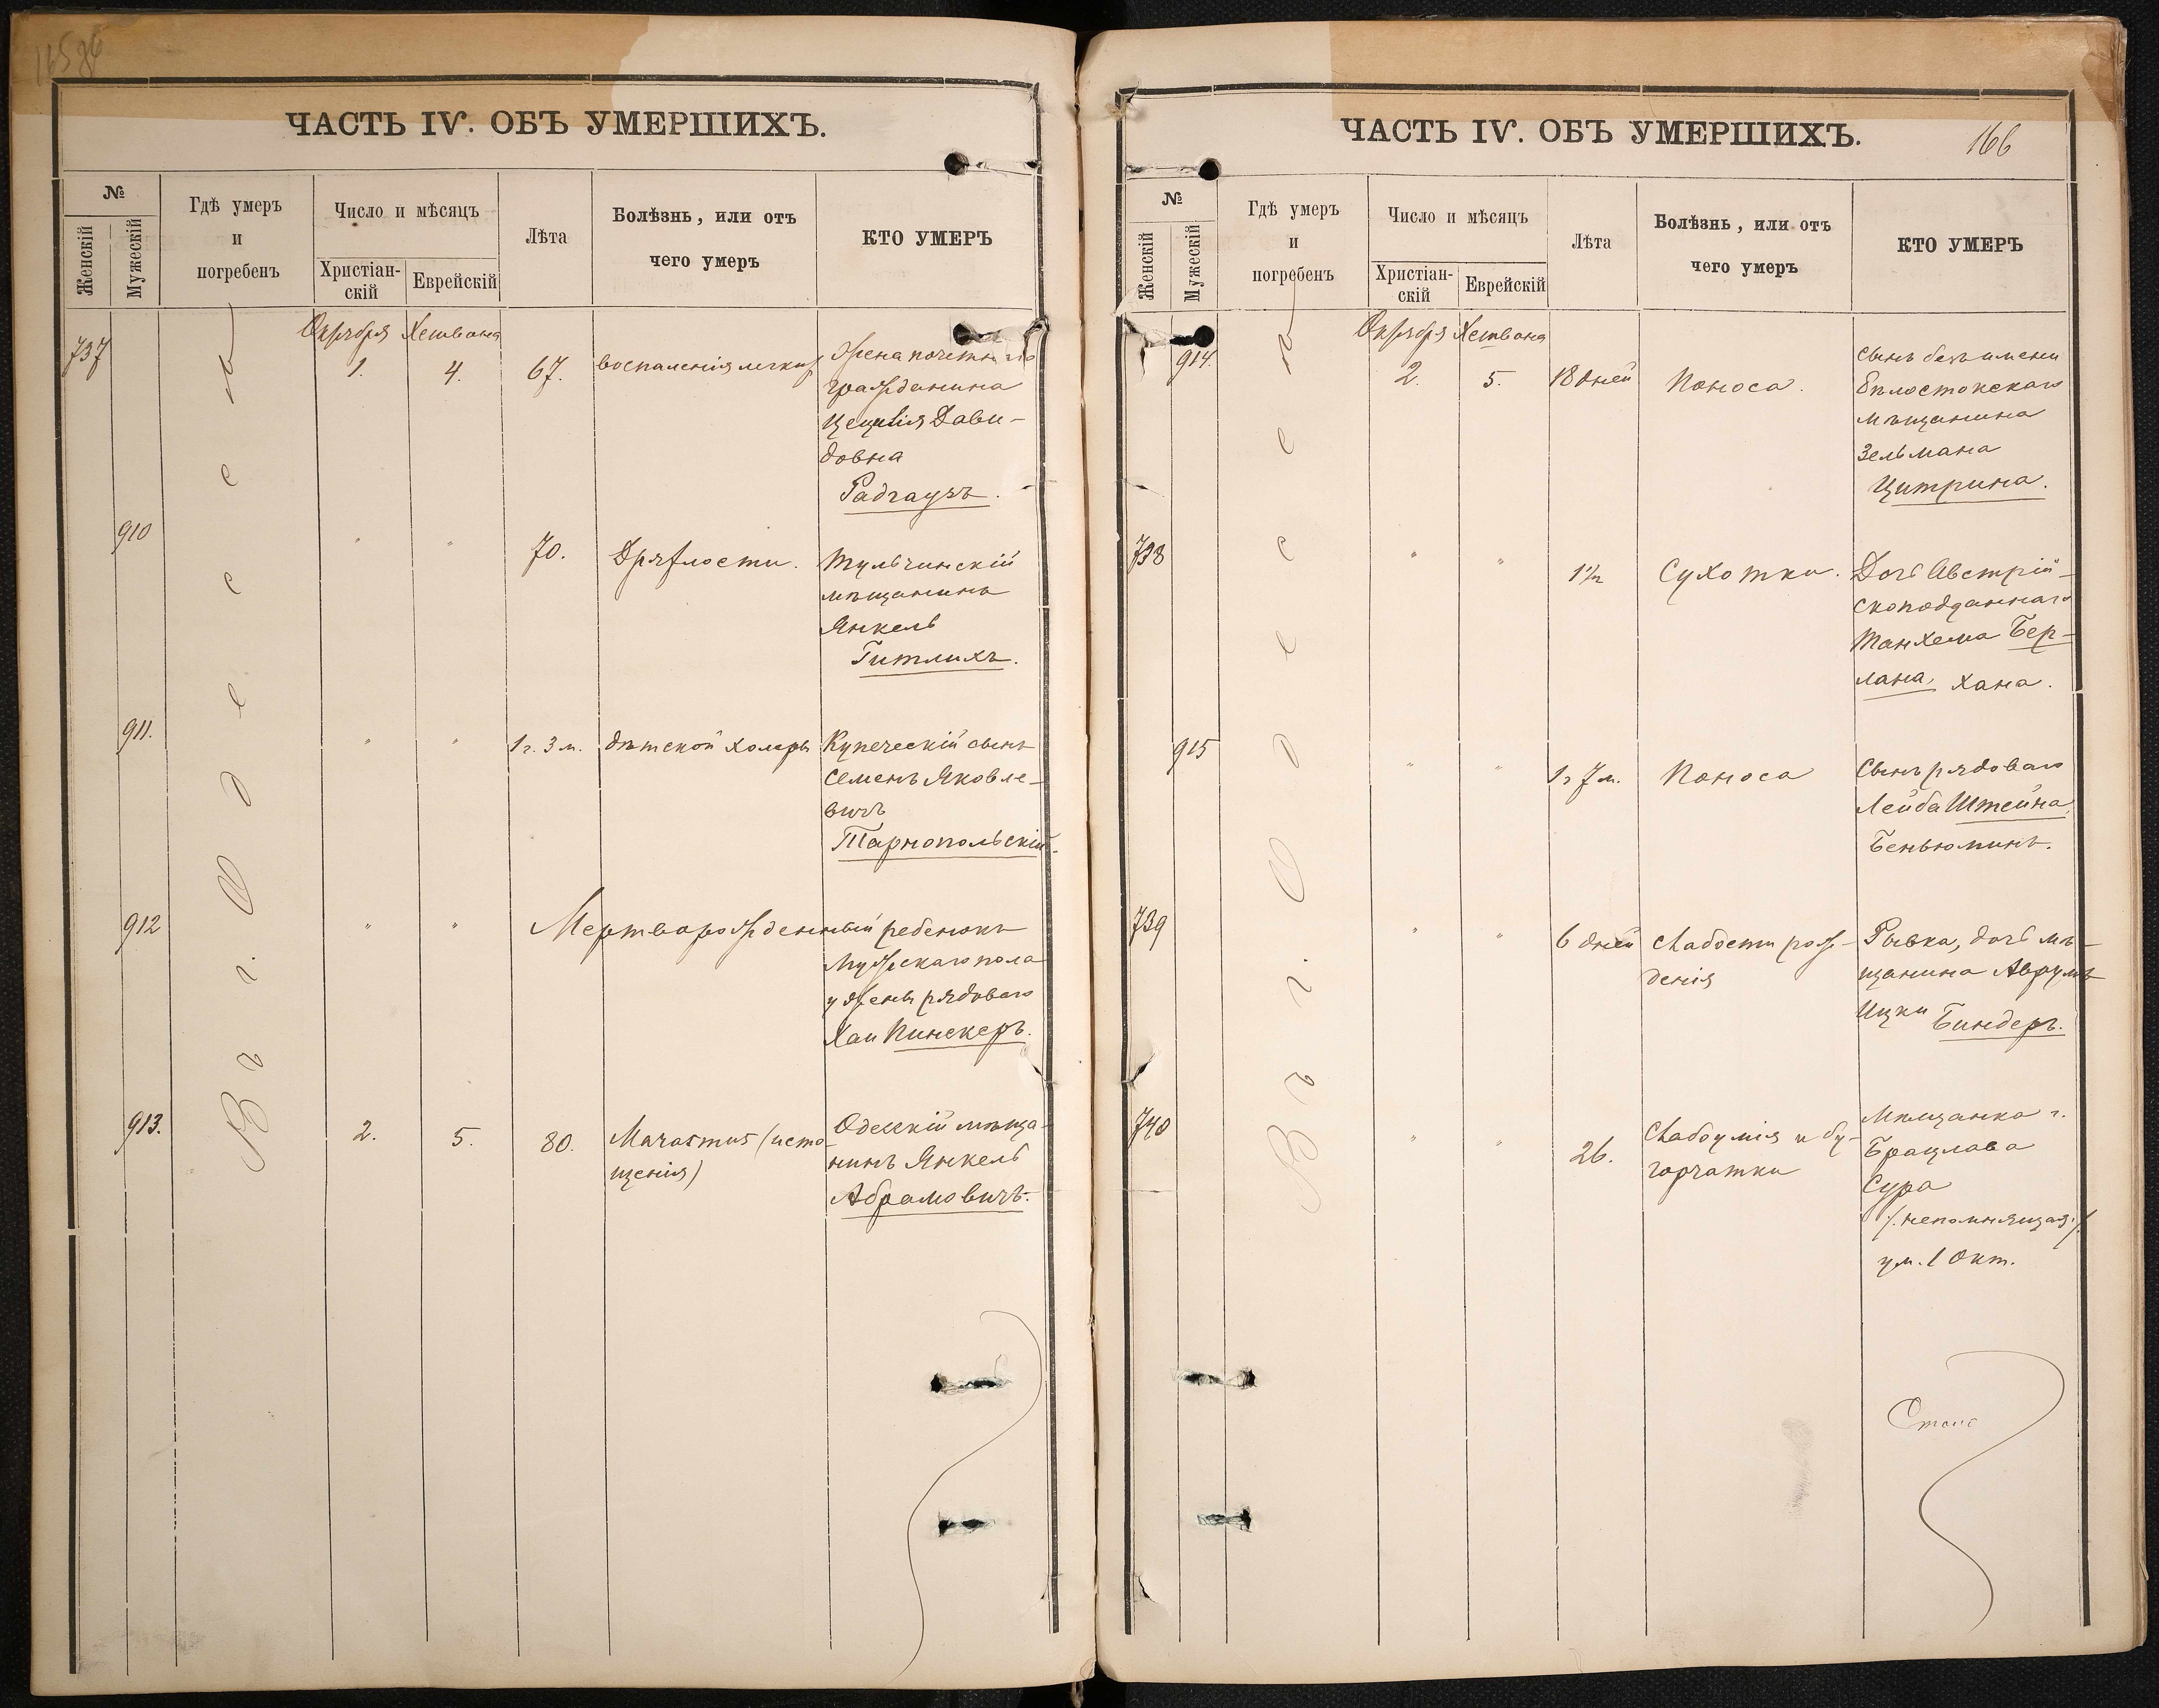 ЧАСТЬ IV. ОБЪ УМЕРШИХЪ.
№
Женскій
Мужескій
Гдѣ умеръ
и
погребенъ
Число и мѣсяцъ
Христіан-
скій
Еврейскій
Лѣта
Болѣзнь, или отъ
чего умеръ
КТО УМЕРЪ
Въ г. Одессѣ
Октября Хешвана
737
1.
4.
67.
воспаленія легких
Жена почетнаго
гражданина
Цецилія Дави-
довна
Радгаузъ.
910
"
"
70.
Дряхлости.
Тульчинскій
мѣщанинъ
Янкель
Гитлихъ.
911.
"
"
1 г. 3 м.
дѣтской холеры
Купеческій сынъ
Семенъ Яковле-
вичъ
Тарнопольскій.
912
"
"
Мертворожденный ребенокъ
мужскаго пола
у жены рядоваго
Хаи Пинскеръ.
913.
2.
5.
80.
Marasmus (исто-
щенія)
Одесскій мѣща-
нинъ Янкель
Абрамовичъ.
ЧАСТЬ IV. ОБЪ УМЕРШИХЪ.
166
№
Женскій
Мужескій
Гдѣ умеръ
и
погребенъ
Число и мѣсяцъ
Христіан-
скій
Еврейскій
Лѣта
Болѣзнь, или отъ
чего умеръ
КТО УМЕРЪ
Въ г. Одессѣ
Октября Хешвана
914.
2.
5.
18 дней
Поноса.
Сынъ безъ имени
Бѣлостокскаго
мѣщанина
Зельмана
Цитрина.
738
"
"
1 1/2
Сухотки.
Дочь Австрій-
скоподданнаго
Танхема Бер-
лана, Хана.
915
"
"
1 г 7 м.
Поноса
Сынъ рядоваго
Лейба Штейна,
Беньюминъ.
739
"
"
6 дней
Слабости рож-
денія
Рывка, дочь мѣ-
щанина Аврумъ
Ицки Биндеръ.
740
"
"
26.
Слабоумія и бу-
горчатки
Мѣщанка г.
Брацлава
Сура
/. непомнящая ./
ум. 1 Окт.